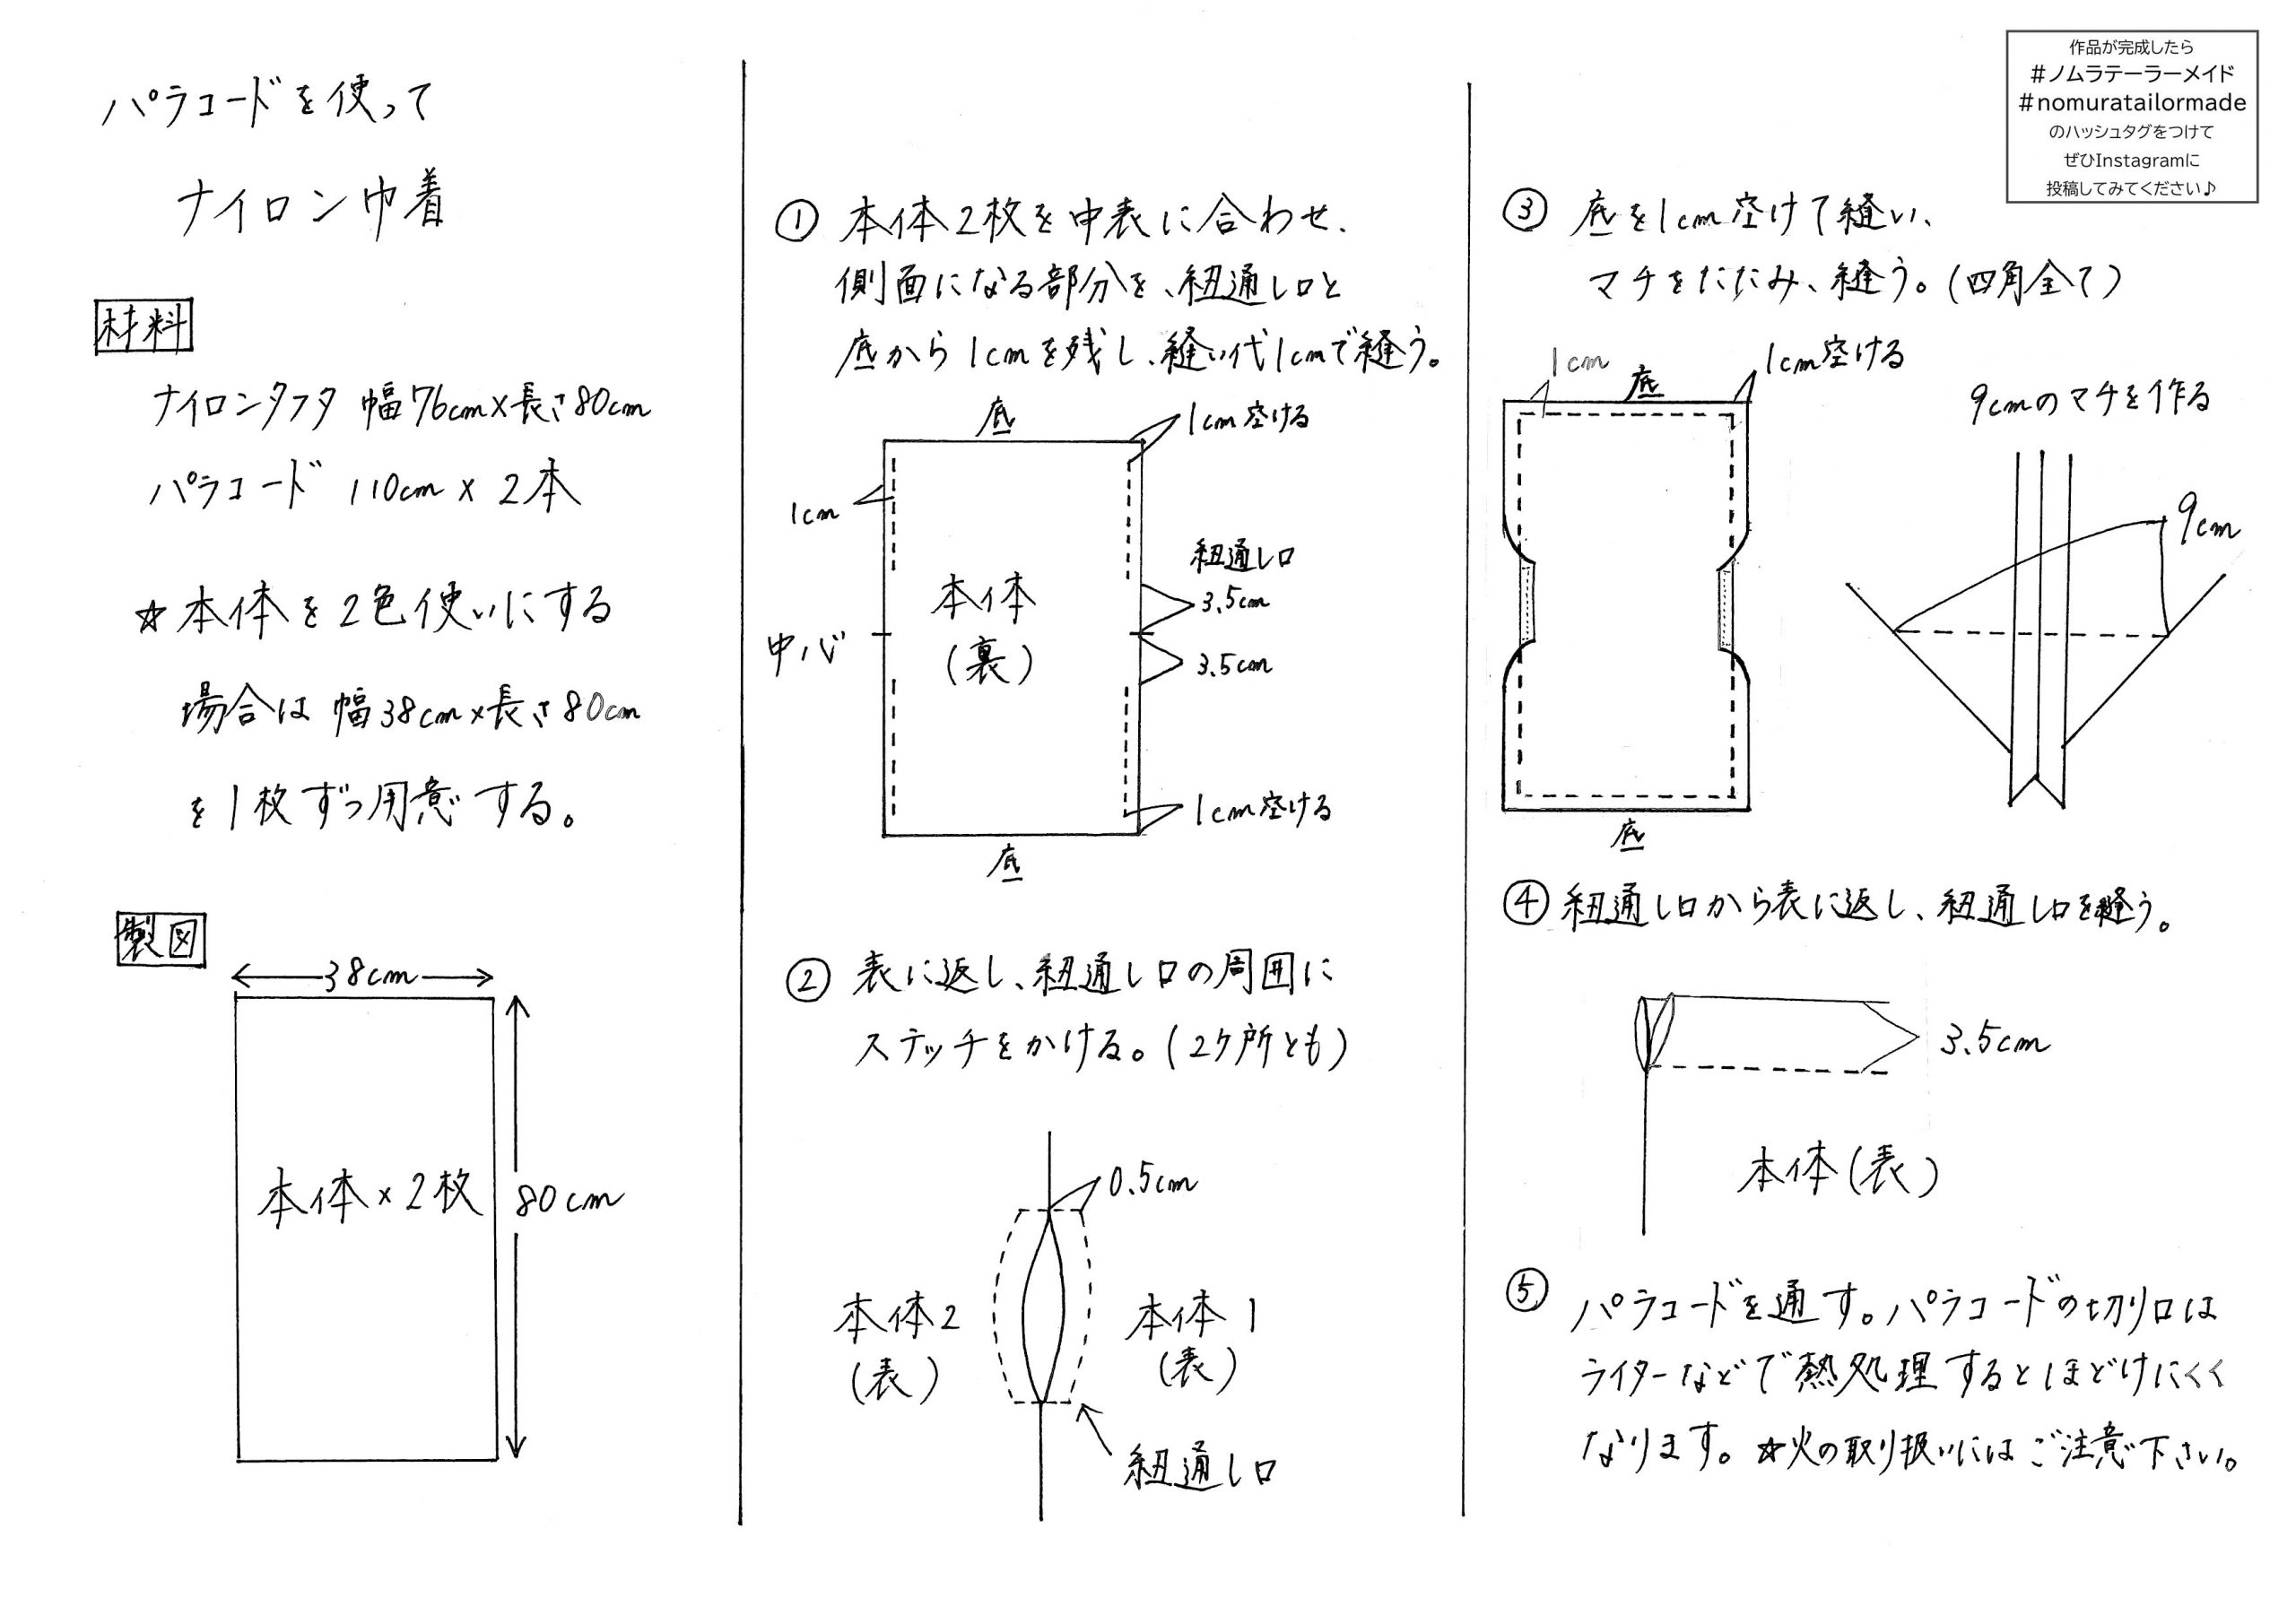 パラコードを使って
ナイロン巾着
材料
ナイロンタフタ 幅76cm×長さ80cm
パラコード 110cm × 2本
☆本体を2色使いにする
場合は 幅38cm×長さ80cm
を1枚ずつ用意する。
製図
38cm
本体×2枚
80cm
① 本体2枚を中表に合わせ、
側面になる部分を、紐通し口と
底から1cmを残し、縫い代1cmで縫う。
底
1cm空ける
1cm
紐通し口
本体
(裏)
3.5cm
中心
3.5cm
1cm空ける
底
② 表に返し、紐通し口の周囲に
ステッチをかける。(2ケ所とも)
0.5cm
本体2
(表)
本体1
(表)
紐通し口
作品が完成したら
#ノムラテーラーメイド
#nomuratailormade
のハッシュタグをつけて
ぜひInstagramに
投稿してみてください♪
③ 底を1cm空けて縫い、
マチをたたみ、縫う。(四角全て)
1cm
底
1cm空ける
9cmのマチを作る
9cm
底
④ 紐通し口から表に返し、紐通し口を縫う。
3.5cm
本体(表)
⑤ パラコードを通す。パラコードの切り口は
ライターなどで熱処理するとほどけにくく
なります。☆火の取り扱いにはご注意下さい。